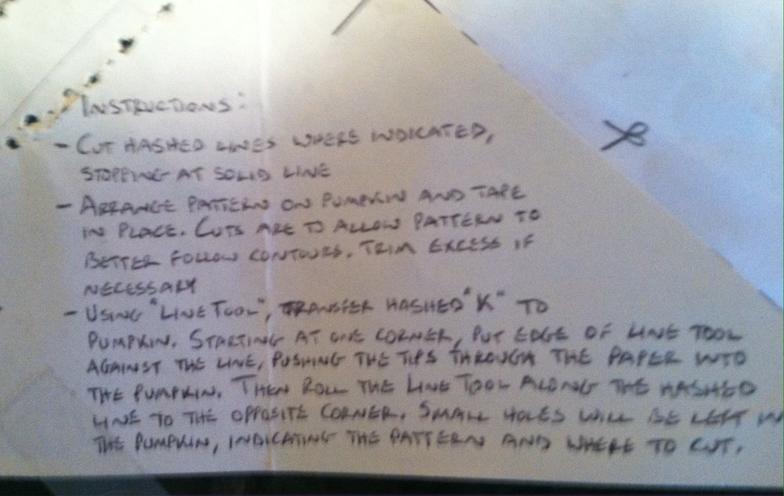 INSTRUCTIONS:
- CUT HASHED LINES WHERE INDICATED,
STOPPING AT SOLID LINE
- ARRANGE PATTERN ON PUMPKIN AND TAPE
IN PLACE. CUTS ARE TO ALLOW PATTERN TO
BETTER FOLLOW CONTOURS. TRIM EXCESS IF
NECESSARY
- USING "LINE TOOL", TRANSFER HASHED "K" TO
PUMPKIN. STARTING AT ONE CORNER, PUT EDGE OF LINE TOOL
AGAINST THE LINE, PUSHING THE TIPS THROUGH THE PAPER INTO
THE PUMPKIN. THEN ROLL THE LINE TOOL ALONG THE HASHED
LINE TO THE OPPOSITE CORNER. SMALL HOLES WILL BE LEFT IN
THE PUMPKIN, INDICATING THE PATTERN AND WHERE TO CUT.